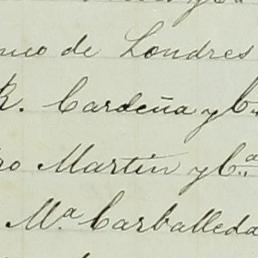 de Londres
R. Cardeña y C
Martin y Cª
Mª Carballeda